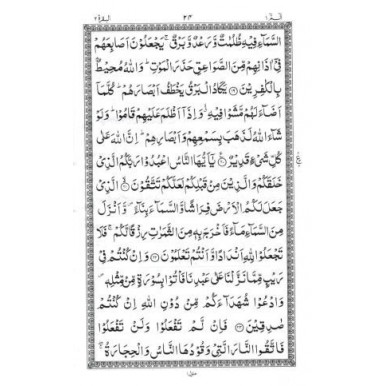 السَّمَآءِ فِيْهِ ظُلُمٰتٌ وَّرَعْدٌ وَّبَرْقٌ ۚ يَجْعَلُوْنَ اَصَابِعَهُمْ
فِيْٓ اٰذَانِهِمْ مِّنَ الصَّوَاعِقِ حَذَرَ الْمَوْتِ ؕ وَاللّٰهُ مُحِيْطٌۢ
بِالْكٰفِرِيْنَ ۝ يَكَادُ الْبَرْقُ يَخْطَفُ اَبْصَارَهُمْ ؕ كُلَّمَآ
اَضَآءَ لَهُمْ مَّشَوْا فِيْهِ ۙ وَاِذَآ اَظْلَمَ عَلَيْهِمْ قَامُوْا ؕ وَلَوْ
شَآءَ اللّٰهُ لَذَهَبَ بِسَمْعِهِمْ وَاَبْصَارِهِمْ ؕ اِنَّ اللّٰهَ عَلٰى
كُلِّ شَيْءٍ قَدِيْرٌ ۝ يٰٓاَيُّهَا النَّاسُ اعْبُدُوْا رَبَّكُمُ الَّذِيْ
خَلَقَكُمْ وَالَّذِيْنَ مِنْ قَبْلِكُمْ لَعَلَّكُمْ تَتَّقُوْنَ ۝ الَّذِيْ
جَعَلَ لَكُمُ الْاَرْضَ فِرَاشًا وَّالسَّمَآءَ بِنَآءً ۪ وَّاَنْزَلَ
مِنَ السَّمَآءِ مَآءً فَاَخْرَجَ بِهٖ مِنَ الثَّمَرٰتِ رِزْقًا لَّكُمْ ۚ فَلَا
تَجْعَلُوْا لِلّٰهِ اَنْدَادًا وَّاَنْتُمْ تَعْلَمُوْنَ ۝ وَاِنْ كُنْتُمْ فِيْ
رَيْبٍ مِّمَّا نَزَّلْنَا عَلٰى عَبْدِنَا فَاْتُوْا بِسُوْرَةٍ مِّنْ مِّثْلِهٖ ۪
وَادْعُوْا شُهَدَآءَكُمْ مِّنْ دُوْنِ اللّٰهِ اِنْ كُنْتُمْ
صٰدِقِيْنَ ۝ فَاِنْ لَّمْ تَفْعَلُوْا وَلَنْ تَفْعَلُوْا
فَاتَّقُوا النَّارَ الَّتِيْ وَقُوْدُهَا النَّاسُ وَالْحِجَارَةُ ۚ